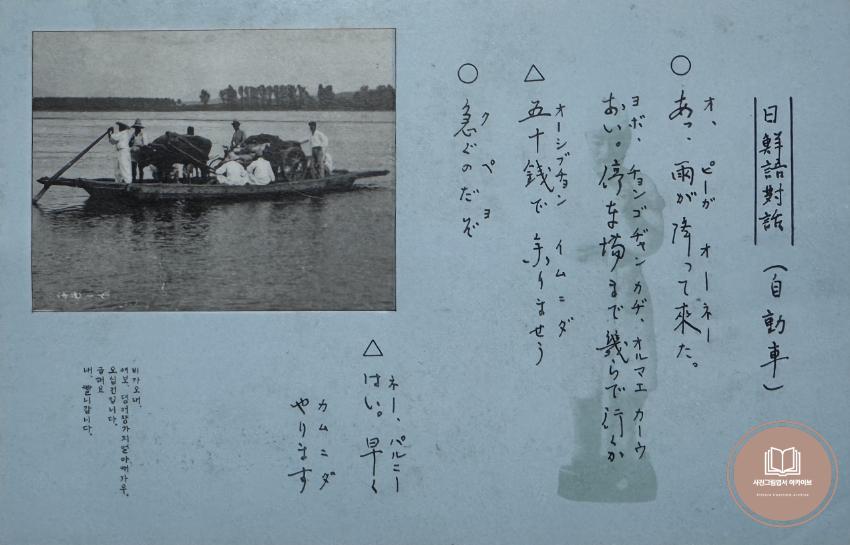 日鮮語對話 (自動車)
オ、 ピーガ オーネー
○ あっ、雨が降って來た。
ヨボ、 チョンゴヂャン カヂ、オルマエ カーウ
おい。停車場まで幾らで行くか
オーシプチョン イムニダ
△ 五十錢で参りませう
クペヨ
○ 急ぐのだぞ
ネー、パルニー
△ はい。早く
カムニダ
やります
비가오네.
여보, 덩거쟝가지얼마에가우.
오십전입니다.
급해요
내, 빨니갑니다.
사진그림엽서 아카이브